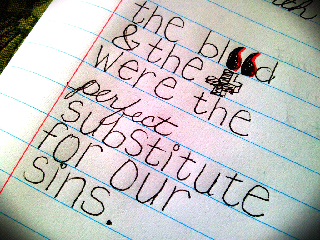 the blood
& the
were the
perfect
substitute
for our
sins.